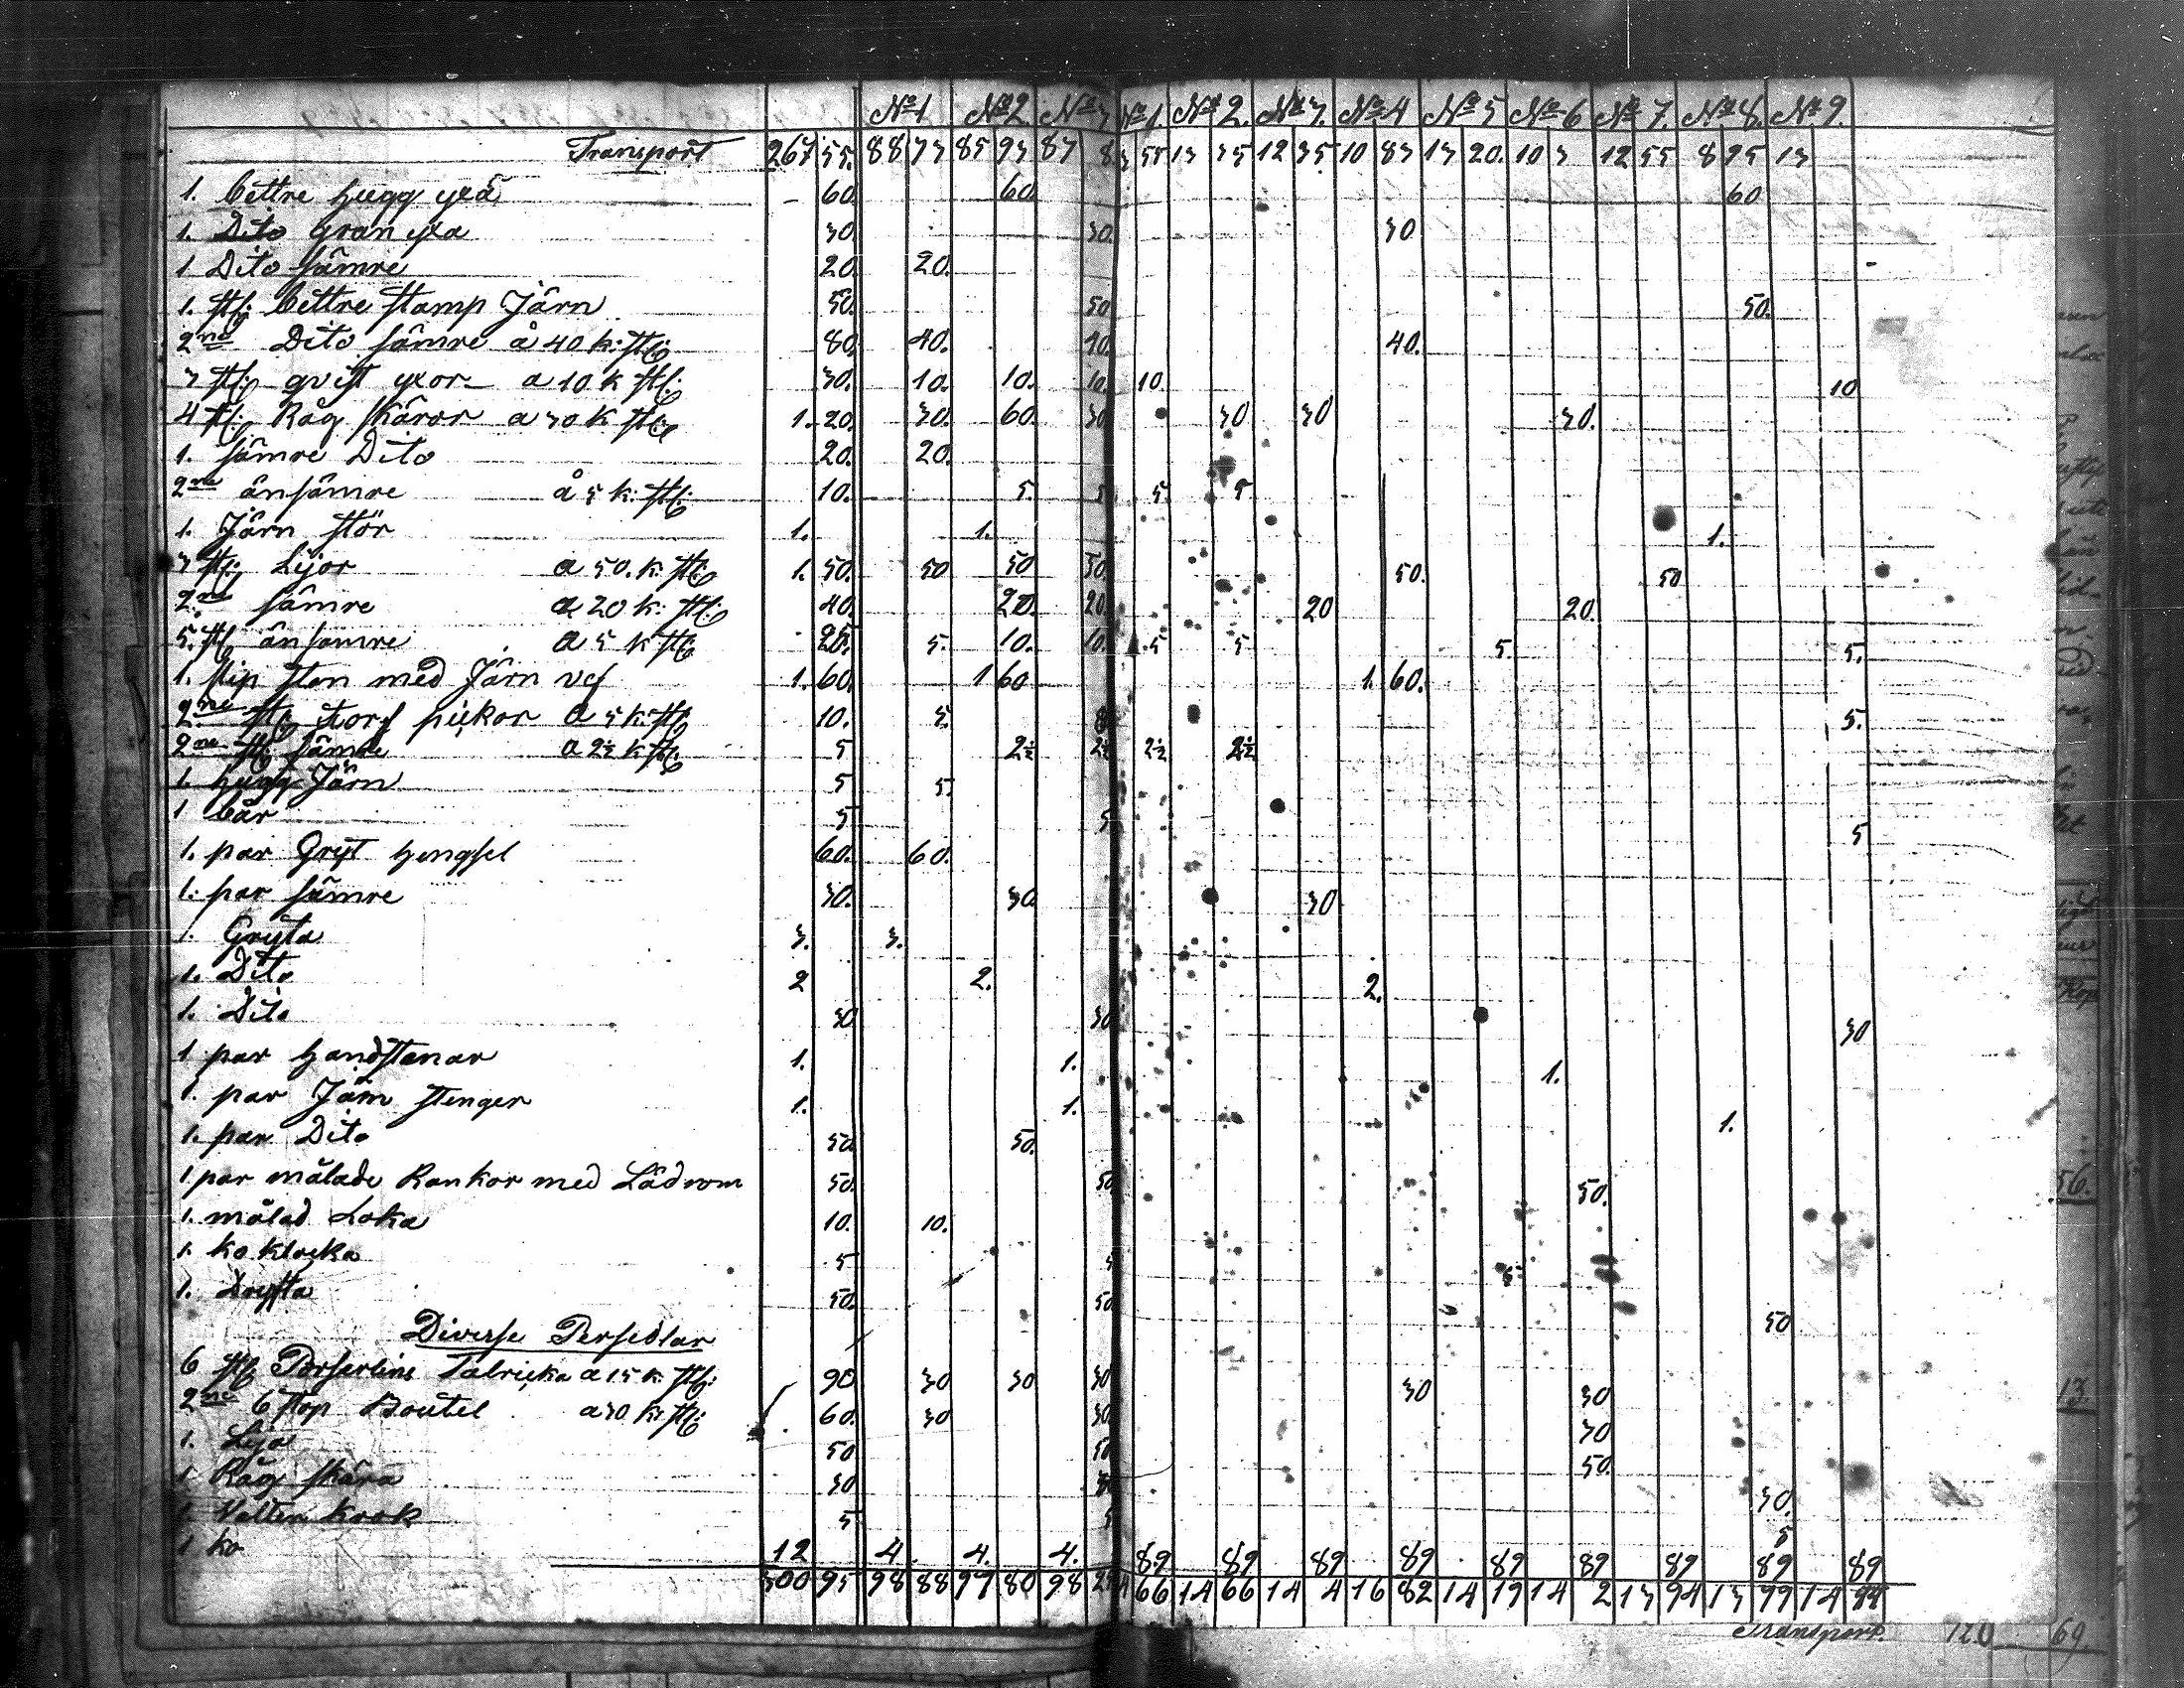 №1 №2 №3 №1 №2. №3. №4 №5 №6 №7. №8. №9.
Transport 267 55. 88 73 85 93 87 8 55 13 35 12 35 10 83 13 20. 10 3 12 55 8 95 13
1. bettre hugg yxa 60. 60. 60
1. Dito Gran yxa 30. 30. 30
1 Dito sämre 20. 20.
1. st: bettre stamp Järn 50. 50. 50.
2ne Dito sämre à 40 k: st: 80. 40. 40. 40.
3 st: qvist yxor a 10 k st: 30. 10. 10. 10. 10. 10
4 st: Råg skäror a 30 k st: 1. 20. 30. 60. 30 30 30 30.
1. sämre Dito 20. 20.
2ne änsämre à 5 k: st: 10. 5. 5 5. 5
1. Järn stör 1. 1. 1.
3 st: Lijor a 50. k: st: 1. 50. 50 50 50. 50. 50
2ne sämre a 20 k: st: 40. 20. 20. 20 20.
5. st änsämre a 5 k st: 25. 5. 10. 10. 5 5 5. 5.
1. slip sten med Järn vef 1. 60. 1 60 1. 60.
2ne st: torf hickor a 5 k: st: 10. 5. 5.
2ne st: sämre a 2½ k st: 5 2½ 2½ 2½ 2½
1. hugg Järn 5 5.
1 bår 5 5 5
1. par Gryt hengsel 60. 60.
1. par sämre 30. 30. 30
1. Gryta 3. 3.
1. Dito 2 2. 2.
1. Dito 30 30 30
1 par handstenar 1. 1. 1.
1. par Järn stenger 1. 1. 1.
1. par Dito 50. 50.
1 par målade Rankor med Lädrom 50. 50 50.
1. målad Loka 10. 10.
1. ko klocka 5 5 5
1. Dryfta 50. 50 50
Diverse Persedlar
6 st Porserlins Talricka a 15 k. st: 90 30 30 30 30 30
2ne 6 stop Boutel a 30 k: st: 60. 30 30. 30
1. Lya 50 50 50.
1 Råg skära 30 30.
1. Vatten Krok 5 5 5
1 ko 12 4. 4. 4. 89 89 89 89 89 89 89 89 89
300 95 98 88 97 80 98 66 14 66 14 4 16 82 14 19 14 2 13 94 13 99 14
Transport. 120 69.